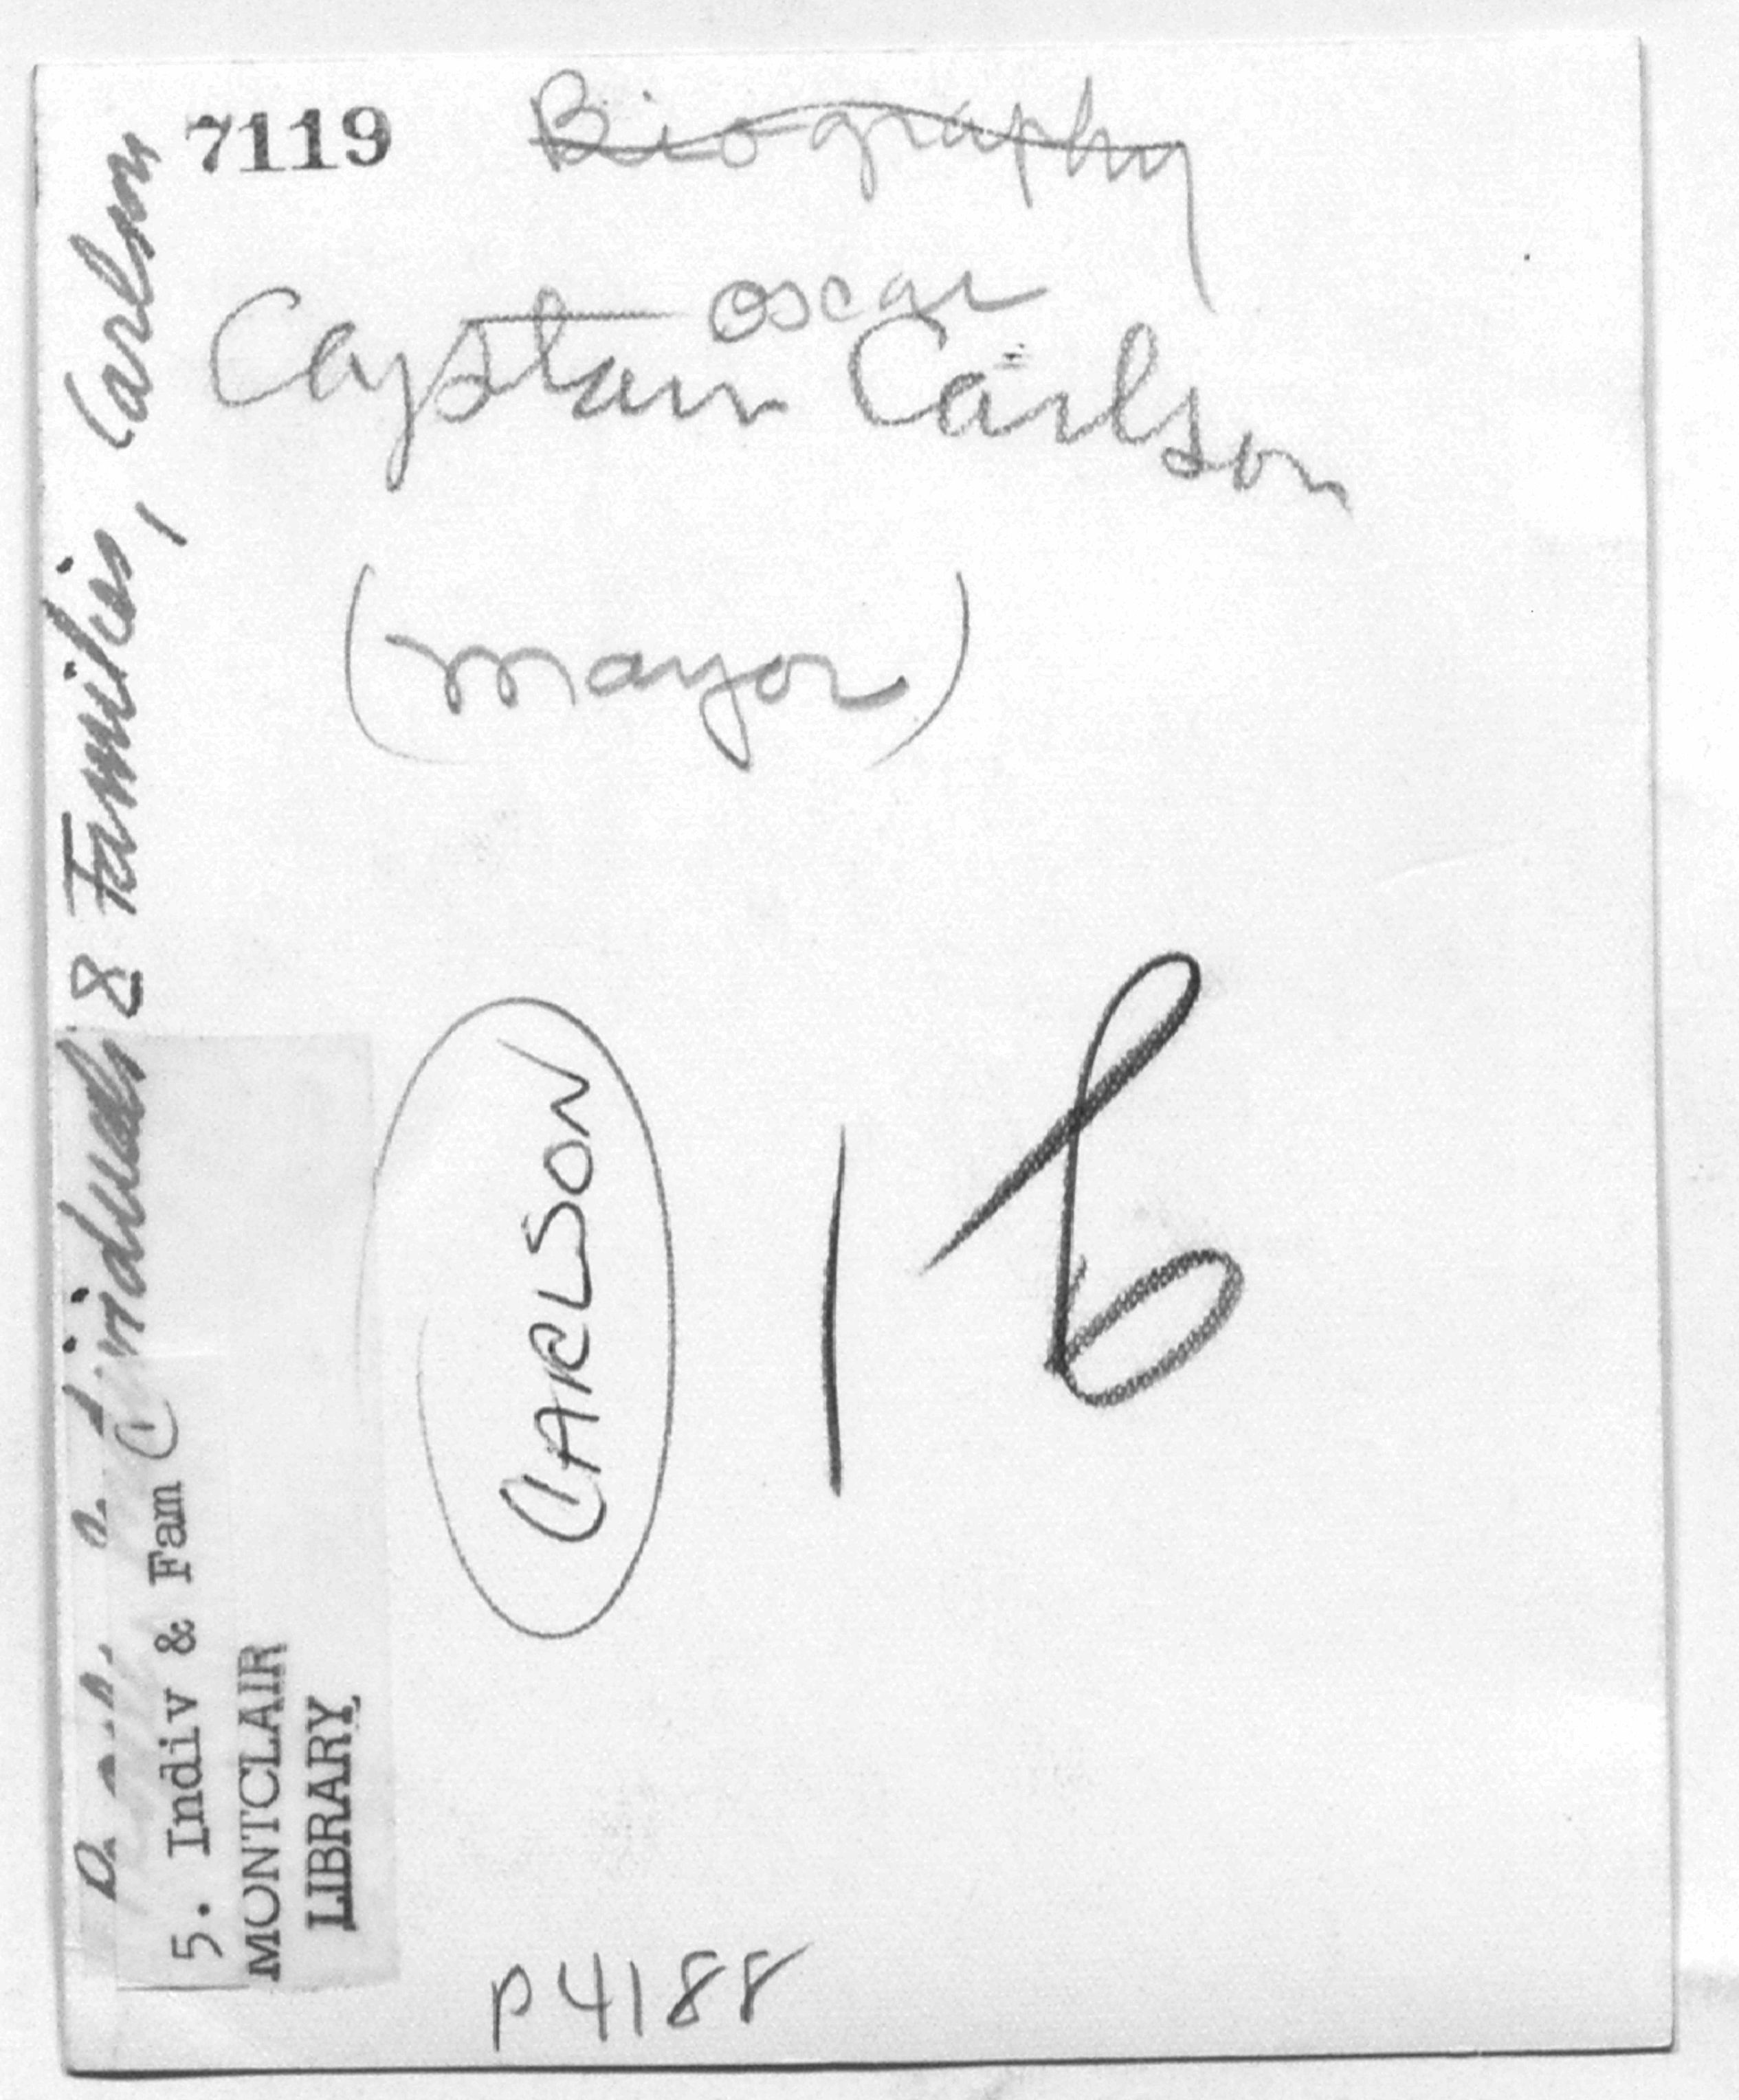 7119
Biography
Oscar
Captain Carlson
(mayor)
Individuals & Families, Carlson
5. Indiv & Fam C
MONTCLAIR
LIBRARY
CARLSON
1 b
P4188